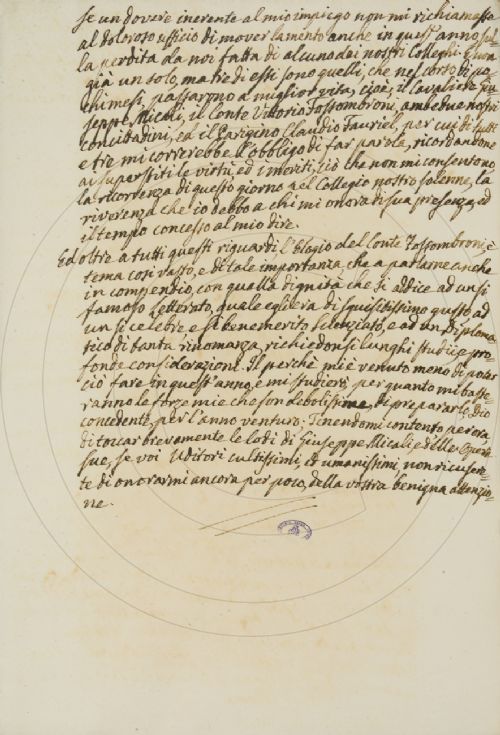 Se un dovere inerente al mio impiego non mi richiamasse
al doloroso ufficio di mover lamento anche in quest'anno sul-
la perdita da noi fatta di alcuno dei nostri Colleghi. E non
già un solo, ma tre di essi sono quelli, che nel corso di po-
chi mesi, passarono a miglior vita, cioè, il Cavaliere Giu-
seppe Micali, il Conte Vittorio Fossombroni, ambedue nostri
concittadini, ed il Parigino Claudio Fauriel, per cui di tutti
e tre mi correrebbe l'obbligo di far parola, ricordandone
ai superstiti le virtù, ed i meriti; ciò che non mi consentono
la ricorrenza di questo giorno pel Collegio nostro solenne, la
riverenza che io debbo a chi mi onora di sua presenza, ed
il tempo concesso al mio dire.
Ed oltre a tutti questi riguardi, l'Elogio del Conte Fossombroni, è
tema così vasto, e di tale importanza, che a parlarne anche
in compendio, con quella dignità che si addice ad un sì
famoso Letterato, quale egli era di squisitissimo gusto, ad
un sì celebre e sì benemerito Scienziato, e ad un Diploma-
tico di tanta rinomanza, richiedonsi lunghi studii e pro-
fonde considerazioni. Il perchè mi è venuto meno di poter
ciò fare in quest'anno, e mi studierò, per quanto mi baste-
ranno le forze mie che son debolissime, di prepararlo, Dio
concedente, per l'anno venturo; Tenendomi contento per ora,
di toccar brevemente le lodi di Giuseppe Micali, e delle Opere
sue, se voi Uditori cultissimi, ed umanissimi non ricusere-
te di onorarmi ancora per poco, della vostra benigna attenzio-
ne.